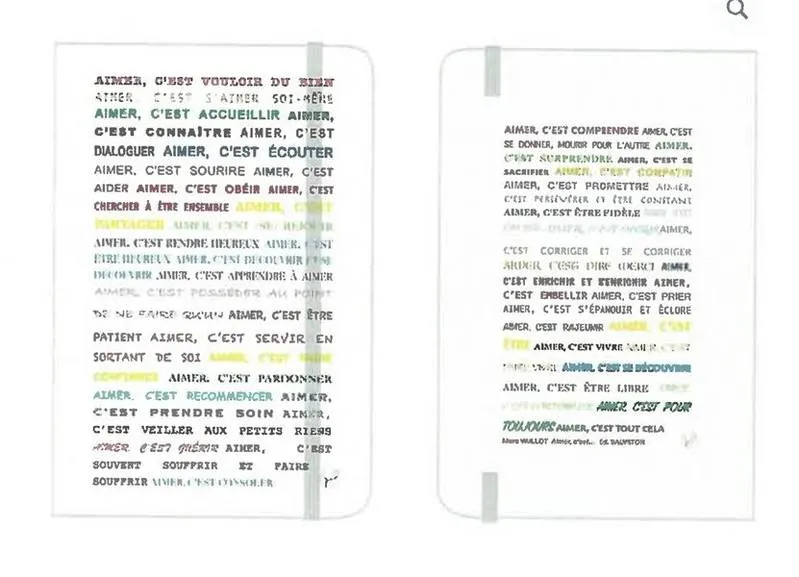 AIMER, C'EST VOULOIR DU BIEN
AIMER, C'EST S'AIMER SOI-MÊME
AIMER, C'EST ACCUEILLIR AIMER,
C'EST CONNAÎTRE AIMER, C'EST
DIALOGUER AIMER, C'EST ÉCOUTER
AIMER, C'EST SOURIRE AIMER, C'EST
AIDER AIMER, C'EST OBÉIR AIMER, C'EST
CHERCHER À ÊTRE ENSEMBLE AIMER, C'EST
PARTAGER AIMER, C'EST SE RÉJOUIR
AIMER, C'EST RENDRE HEUREUX AIMER, C'EST
ÊTRE HEUREUX AIMER, C'EST DÉCOUVRIR ET SE
DÉCOUVRIR AIMER, C'EST APPRENDRE À AIMER
AIMER, C'EST POSSÉDER AU POINT
DE NE FAIRE QU'UN AIMER, C'EST ÊTRE
PATIENT AIMER, C'EST SERVIR EN
SORTANT DE SOI AIMER, C'EST FAIRE
CONFIANCE AIMER, C'EST PARDONNER
AIMER, C'EST RECOMMENCER AIMER,
C'EST PRENDRE SOIN AIMER,
C'EST VEILLER AUX PETITS RIENS
AIMER, C'EST GUÉRIR AIMER, C'EST
SOUVENT SOUFFRIR ET FAIRE
SOUFFRIR AIMER, C'EST CONSOLER
AIMER, C'EST COMPRENDRE AIMER, C'EST
SE DONNER, MOURIR POUR L'AUTRE AIMER,
C'EST SURPRENDRE AIMER, C'EST SE
SACRIFIER AIMER, C'EST COMPATIR
AIMER, C'EST PROMETTRE AIMER,
C'EST PERSÉVÉRER ET ÊTRE CONSTANT
AIMER, C'EST ÊTRE FIDÈLE
AIMER,
C'EST CORRIGER ET SE CORRIGER
AIMER, C'EST DIRE MERCI AIMER,
C'EST ENRICHIR ET S'ENRICHIR AIMER,
C'EST EMBELLIR AIMER, C'EST PRIER
AIMER, C'EST S'ÉPANOUIR ET ÉCLORE
AIMER, C'EST RAJEUNIR AIMER, C'EST
ÊTRE AIMER, C'EST VIVRE AIMER, C'EST
AIMER, C'EST SE DÉCOUVRIR
AIMER, C'EST ÊTRE LIBRE
AIMER, C'EST POUR
TOUJOURS AIMER, C'EST TOUT CELA
Marc WILLOT Aimer, c'est... Ed. SALVATOR